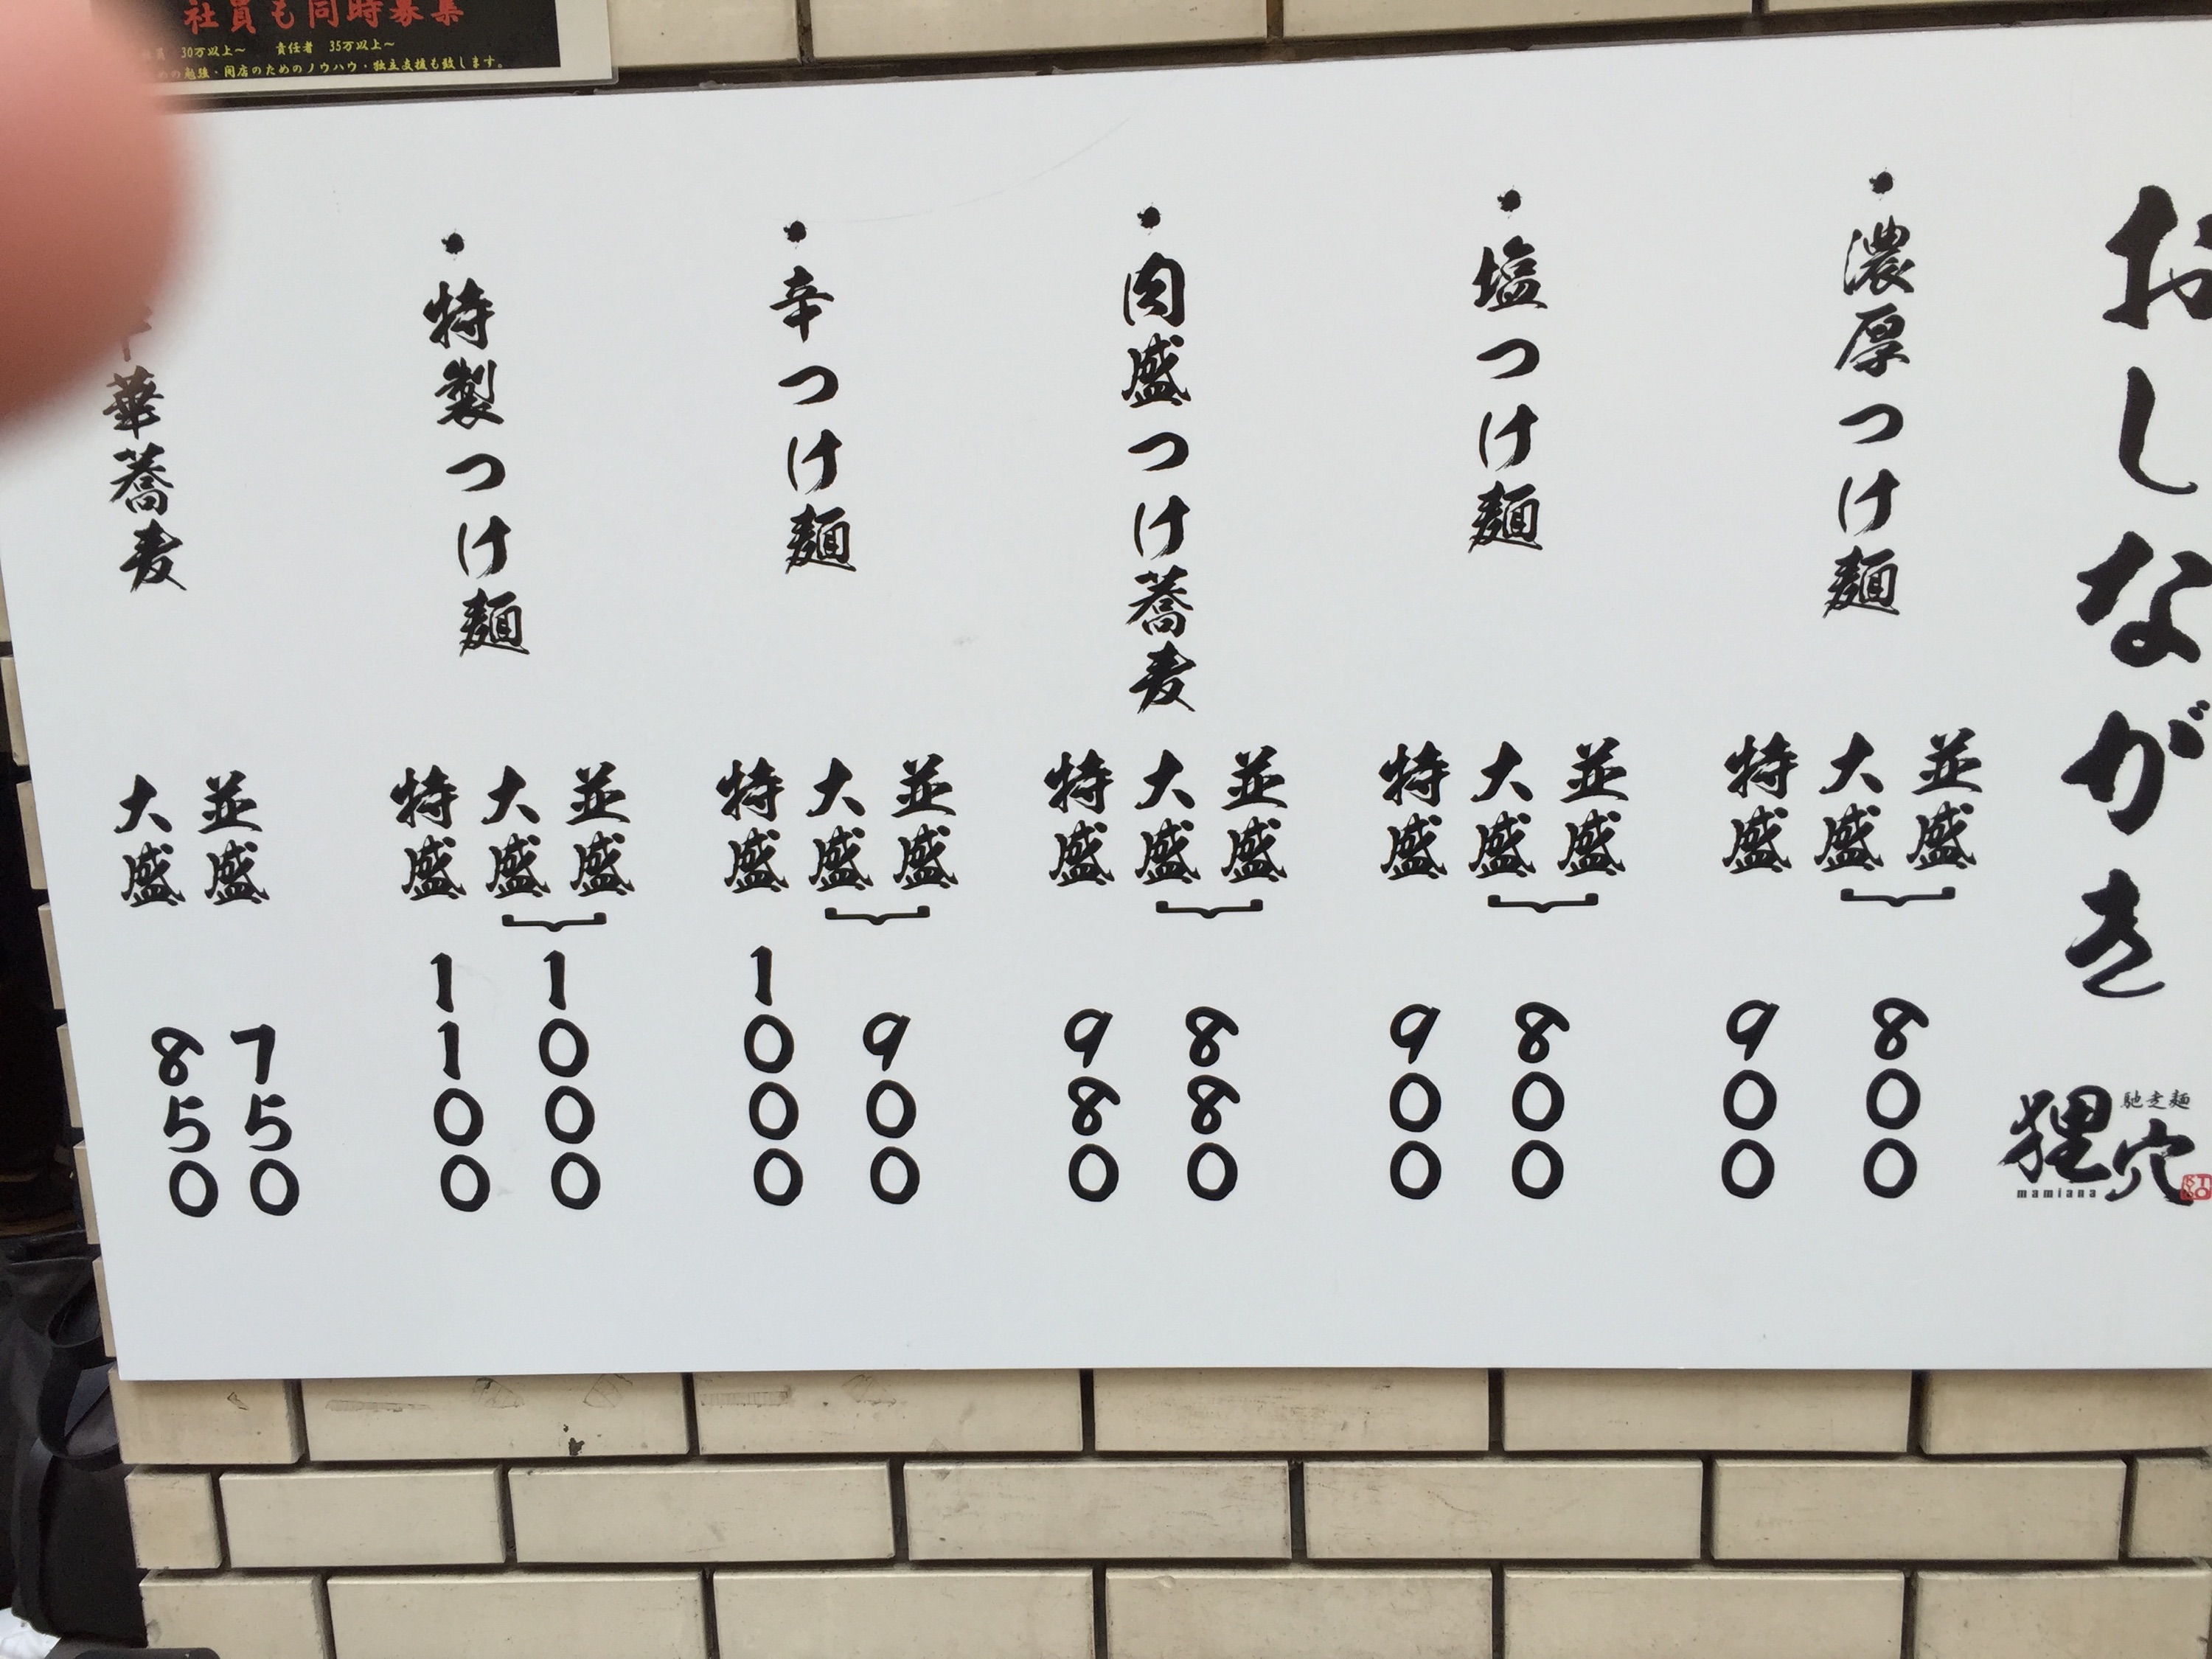 社員も同時募集
30万以上~ 責任者 35万以上~
の勉強・開店のためのノウハウ・独立支援も致します。
おしながき
馳走麺
狸穴
mamiana
・濃厚つけ麺
並盛
大盛
800
特盛
900
・塩つけ麺
並盛
大盛
800
特盛
900
・肉盛つけ蕎麦
並盛
大盛
880
特盛
980
・辛つけ麺
並盛
大盛
900
特盛
1000
・特製つけ麺
並盛
大盛
1000
特盛
1100
華蕎麦
並盛
750
大盛
850